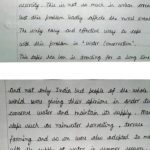 scarcity. This is not as much in urban areas
but this problem badly affects the rural areas
The only easy and effective way to cope
with this problem is "water conservation".
This topic has been is trending for a long time
and not only India but people of the whole
world were giving their opinions in order to
conserve water and maintain its supply. Many
steps such as rainwater harvesting, terrace
farming and so on were also adopted to make